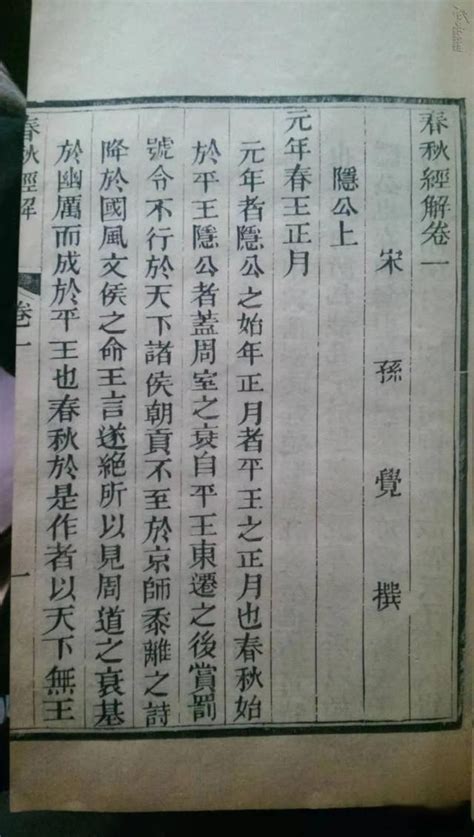 春秋經解卷一
宋孫覺撰
隱公上
元年春王正月
元年者隱公之始年正月者平王之正月也春秋始
於平王隱公者蓋周室之衰自平王東遷之後賞罰
號令不行於天下諸侯朝貢不至於京師黍離之詩
降於國風文侯之命王言遂絕所以見周道之衰基
於幽厲而成於平王也春秋於是作者以天下無王
春秋經解
卷一
一